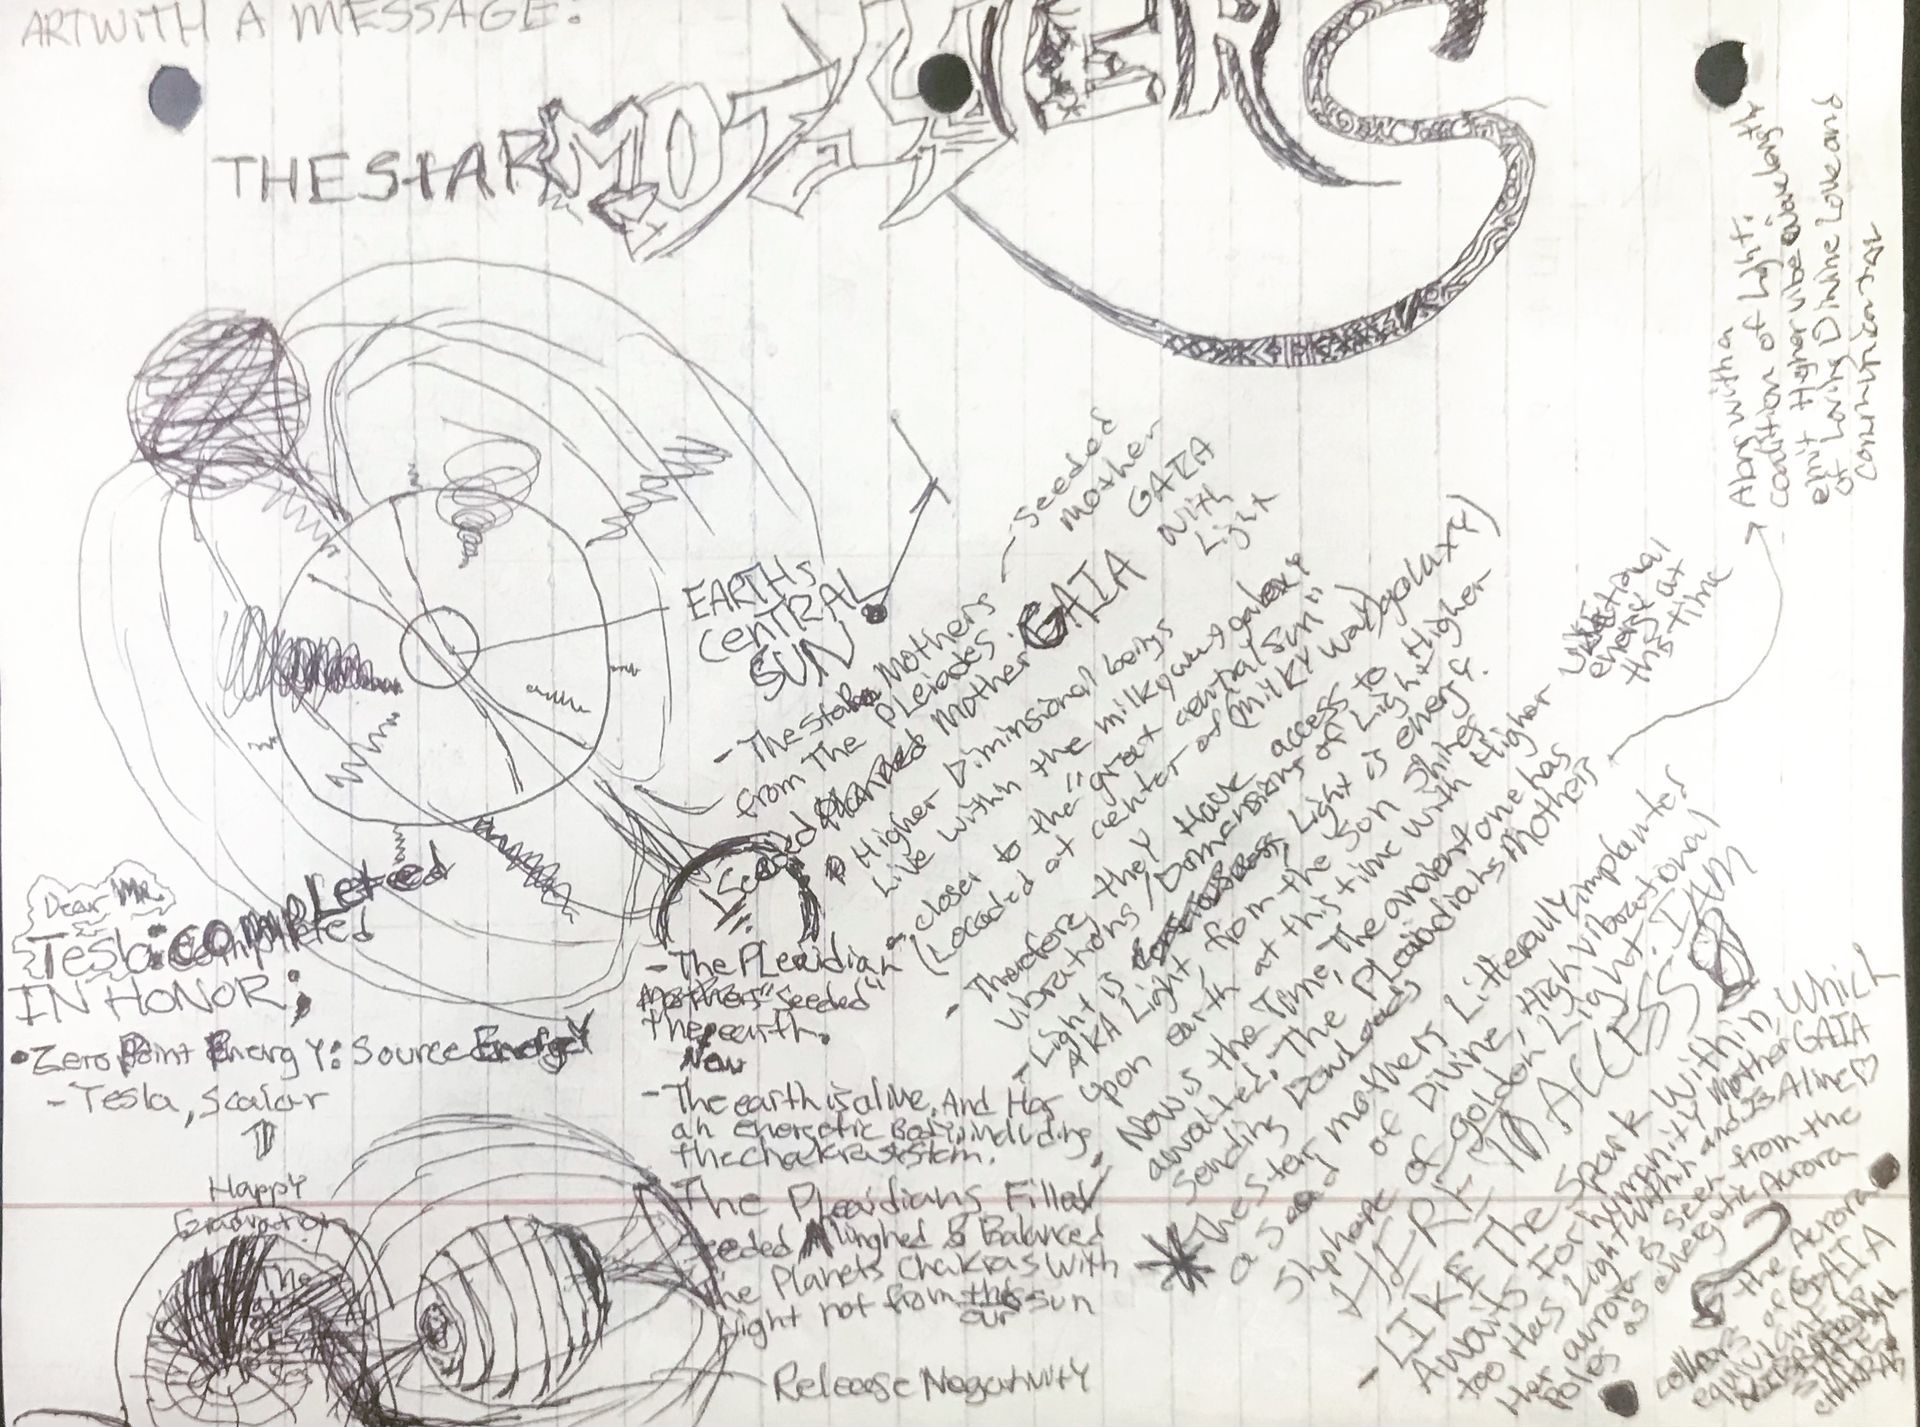 ARTWITH A MESSAGE:
THE STAR MOTHERS
EARTHS
CENTRAL
SUN
- Seeded
mother
GAIA
with
Light
- The Star Mothers
from The PLeiades
Seeded Planted Mother GAIA
Higher Diminsional beings
Live within the milkyway galaxy
- closer to the "great central sun"
(Located at center of (milky way) galaxy)
- Therefore they Have access to Higher
vibrations / Domensions of Light. Higher
- Light is consciousness, Light is energy.
AKA Light, from the Son Shines
upon earth at this time with Higher
vibrational
energy at
this time
- Now is the Time, The ancient one has
awaited. The Pleaidians Mothers
Sending Downloads
Along with a
condition of Light.
emit Higher vibe wavelength
of Loving Divine Love and
* The Star mothers Litterally implanted
a Seed of Divine, High vibrational
Shphere of goldon Light. IAM
HERE IN ACCESS
- LIKE The Spark within which
Awaits For humanity Mother GAIA
too Has Light within and is Alive ♡
Her aurora is seen from the
Poles as energetic Aurora
the Aurora
of GAIA
Dear Mr.
Tesla: COMPLeted
Completed
IN HONOR;
• Zero Point Energy: Source Energy
- Tesla, Scalar
Happy
Graduation
The
Seeded
- The PLeaidian
Mothers "Seeded"
the earth.
Now
- The earth is alive. And Has
an energetic Body, including
the chakra system.
- The PLeaidians Filled
Seeded Alinghed & Balanced
The Planets Chakras with
Light not from the sun
our
Release Negativity